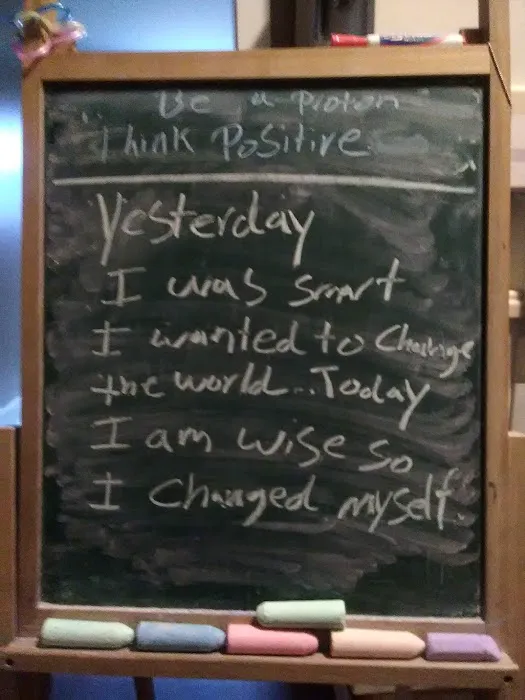 Be a Proton
Think Positive
Yesterday
I was smart
I wanted to Change
the world...Today
I am wise so
I changed myself.